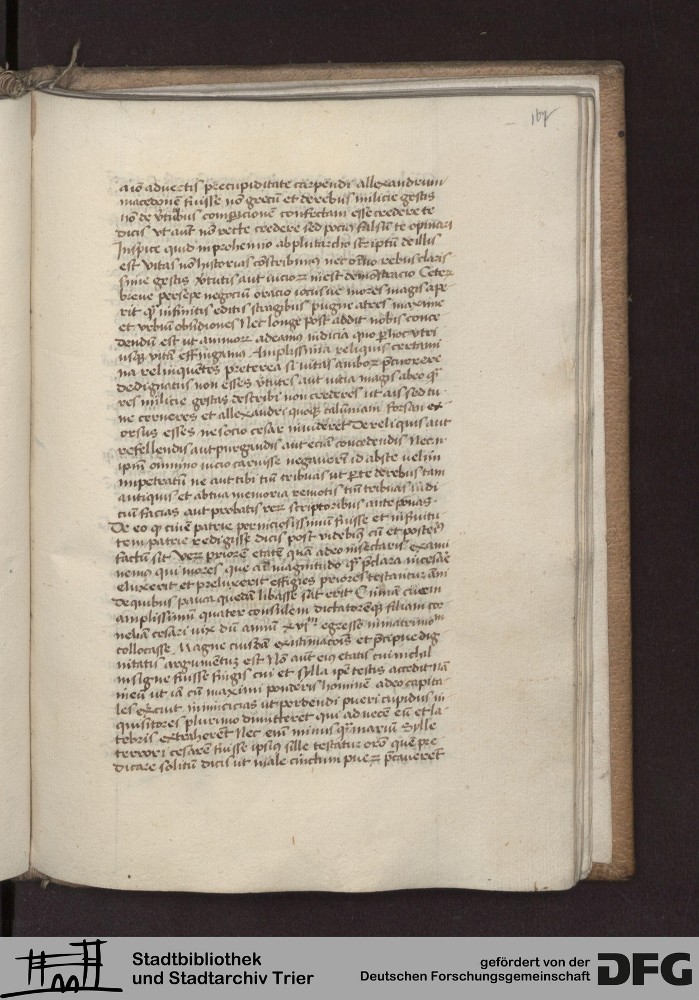 167
aiō advertis p̄cupiditate carpendi allexandrum
macedonē fuisse nō grecū et derebus milicie gestis
nō de v̄tutibus comparacionē confectam esse credere te
dicis vt aut nō recte credere sed pocius falsū te opinari
Inspice quid inprohemio abplutarcho scriptū deillis
est vitas nō historias cōscribimus nec oīno rebusclaris
sime gestis v̄tutis aut vicioꝝ inest demōstracio Ceteꝝ
breve persepe negociū oracio iocusue mores magis ape
rit qͣ infinitis editis stragibus pugne atres maxime
et vrbiū obsidiones Nec longe post addit nobis conce
dendū est ut animoꝝ adeamus indicia quo per hoc vtri
usqꝫ vitā effingamus Amplissima reliquis certami
na relinquentes preterea si vitas amboꝝ
dedignatus non esses v̄tutes aut vicia magis abeo qͣ
res milicie gestas describi non crederes ut ais sed tu
ne cerneres et allexandri quoqꝫ calumniam forsan ex
orsus esses nesocio cesar invideret Dereliquis aut
refellendis aut purgandis aut eciā concedendis Nec .n.
ip̄m omnino vicio caruisse negaverī id abste velim
impetratū ne aut tibi tm̄ tribuas ut per te derebus tam
antiquis et abtua memoria remotis tm̄ tribuas iudi
ciū facias aut probatis reꝝ scriptoribus anteponas.
De eo qͣ civē patrie perniciosissimū fuisse et inservitu
tem patriē redigisse dicis post videbimus cū et posteri
factū sit Veꝝ priorē etatē quā adeo insectaris exami
nemus qui mores que animi magnitudo qͣ p̄clara in cesare
eluxerit et preluxerit effigies priores testantur anni
Dequibus pauca quedā libasse sat erit Cinnā civem
amplissimū quater consulem dictatorēqꝫ filiam cor
neliā cesari vix dū annū xvi^m egresso inmatrimoniū
collocasse Magne cuiusdā existimacōis et p̄cipue dig
nitatis argumentuꝫ est Nō aut eius etatis cui nichil
insigne fuisse fingis cui et sylla ip̄e testis accedit Nā
ineū ut iā cū maximi ponderis hominē adeo capita
les exercuit inimicicias ut perdendi pueri cupidus in
quisitores plurimo dimitteret qui ad necē eū et la
tebris extraherent Nec enī minus qͣ mariū Sylle
terrori cesarē fuisse ipsius sille testatur orō quē pre
dicare solitū dicis ut male cinctum pueꝝ p̄caverēt
Stadtbibliothek
und Stadtarchiv Trier
gefördert von der
Deutschen Forschungsgemeinschaft
DFG